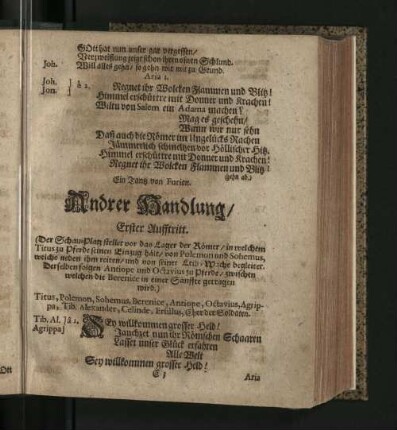 GOtt hat nun unser gar vergessen/
Verzweiflung zeigt schon ihren ofnen Schlund.
Joh. Will alles gehn/ so gehn wir mit zu Grund.
Aria 1.
Joh. Jon. } à 2. Regnet ihr Wolcken Flammen und Blitz!
Himmel erschüttre mit Donner und Krachen!
Wenn von Salem ein Adama machen?
Mag es geschehn/
Wann wir nur sehn
Daß auch die Römer im Unglücks Rachen
Jämmerlich schmeltzen vor Höllischer Hitz.
Himmel erschüttre mit Donner und Krachen!
Regnet ihr Wolcken Flammen und Blitz!
gehn ab.)
Ein Tantz von Furien.
Andrer Handlung/
Erster Aufftritt.
(Der Schau-Platz stellet vor das Lager der Römer/ in welchem
Titus zu Pferde seinen Einzug hält/ von Polemon und Sohemus,
welche neben ihm reiten/ und von seiner Leib-Wache begleitet.
Denselben folgen Antiope und Octavius zu Pferde/ zwischen
welchen die Berenice in einer Sänffte getragen
wird.)
Titus, Polemon, Sohemus, Berenice, Antiope, Octavius, Agrip-
pa, Tib. Alexander, Celinde, Ertullus, Chor der Soldaten.
Tib. Al. Agrippa } à 2. SEy willkommen grosser Held!
Jauchzet nun ihr Römischen Schaaren
Lasset unser Glück erfahren
Alle Welt
Sey willkommen grosser Held!
Aria